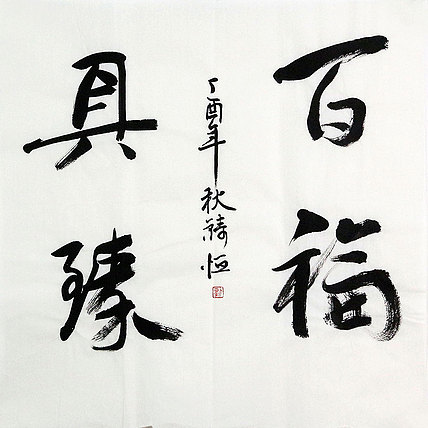 百福
具臻
丁酉年秋綺恒